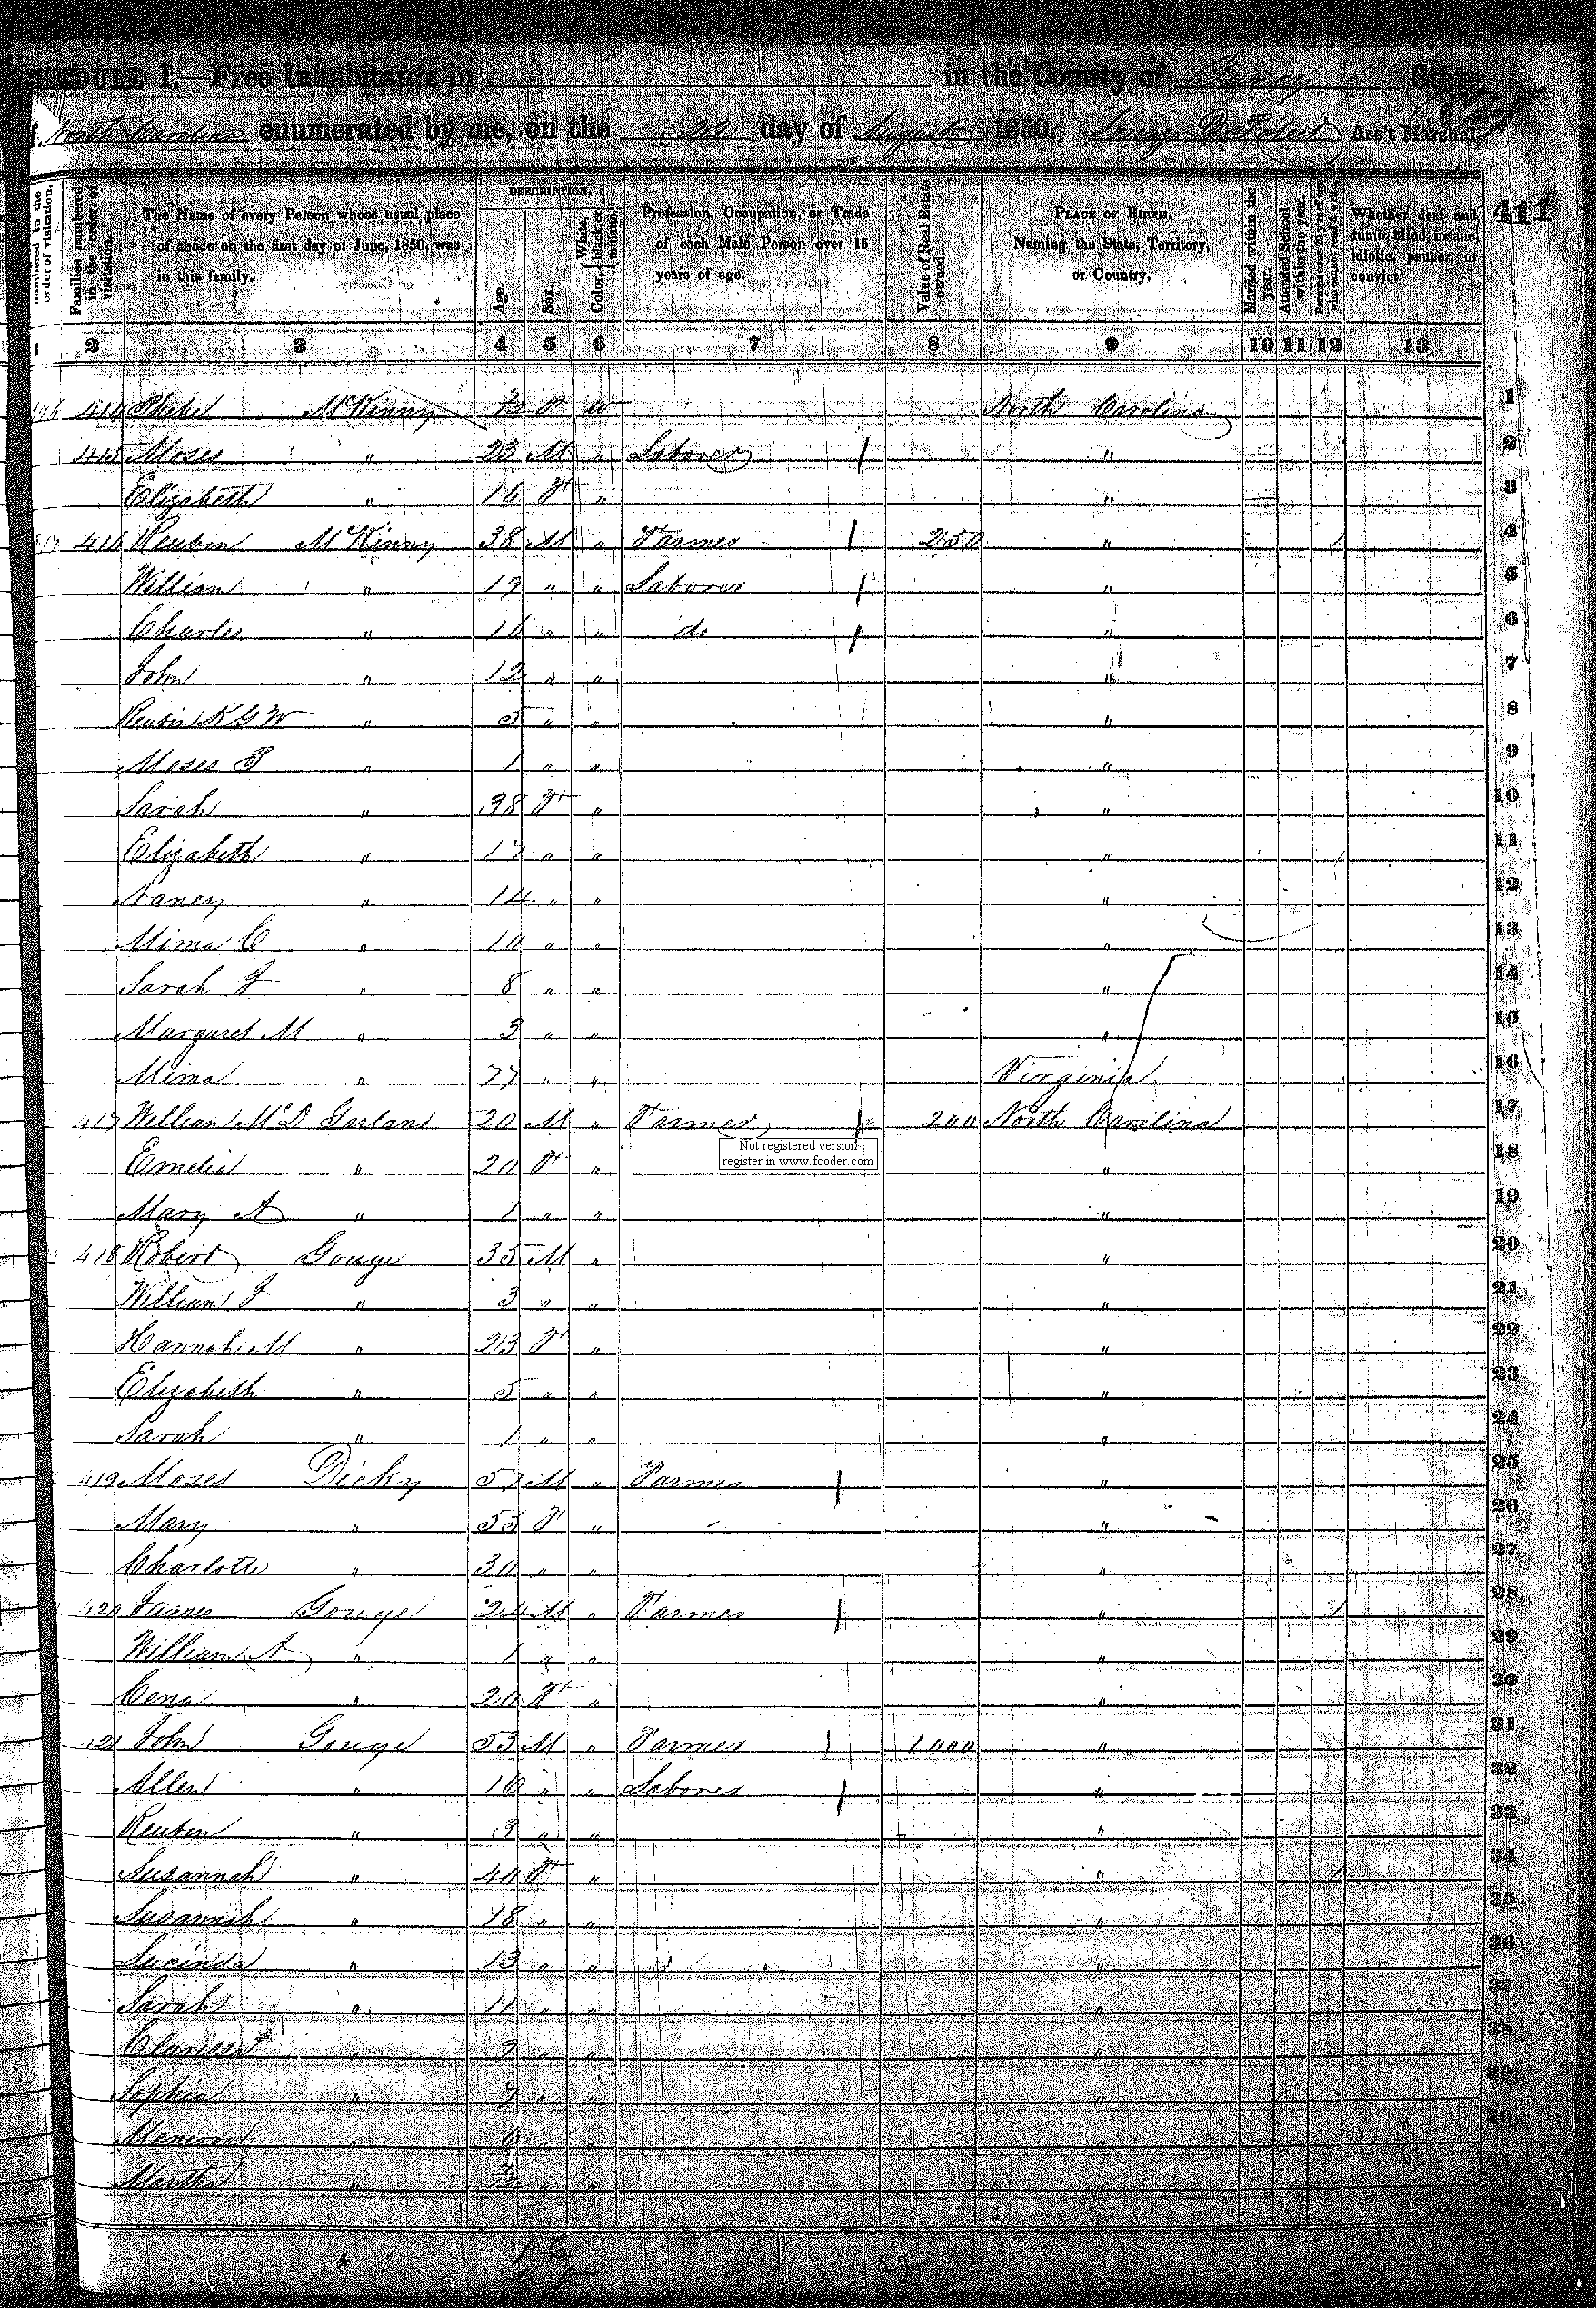 SCHEDULE I.—Free Inhabitants in in the County of Yancey State
of North Carolina enumerated by me, on the 22 day of August 1850. Ass't Marshal.
411
numbered in the order of visitation.
Families numbered in the order of visitation.
The Name of every Person whose usual place of abode on the first day of June, 1850, was in this family.
DESCRIPTION.
Age.
Sex.
Color, White, black, or mulatto.
Profession, Occupation, or Trade of each Male Person over 15 years of age.
Value of Real Estate owned.
PLACE OF BIRTH. Naming the State, Territory, or Country.
Married within the year.
Attended School within the year.
Persons over 20 y'rs of age who cannot read & write.
Whether deaf and dumb, blind, insane, idiotic, pauper, or convict.
1 2 3 4 5 6 7 8 9 10 11 12 13
414 McKinny F W North Carolina 1
415 Moses " 23 M " Laborer " 2
Elizabeth " 16 F " " 3
416 Reubin McKinny 38 M " Farmer 250 " 4
William " 19 " " Laborer " 5
Charles " 16 " " do " 6
John " 12 " " " 7
Reubin K G W " 5 " " " 8
Moses P " 1 " " " 9
Sarah " 38 F " " 10
Elizabeth " 17 " " " 11
Nancy " 14 " " " 12
Mima C " 10 " " " 13
Sarah J " 8 " " " 14
Margaret M " 3 " " " 15
Mima " 77 " " Virginia 16
417 William McD Garland 20 M " Farmer 200 North Carolina 17
Not registered version
register in www.fcoder.com
Emelia " 20 F " " 18
Mary A " 1 " " " 19
418 Robert Gouge 35 M " " 20
William J " 3 " " " 21
Hannah M " 23 F " " 22
Elizabeth " 5 " " " 23
Sarah " 1 " " " 24
419 Moses Dicky 57 M " Farmer " 25
Mary " 53 F " " 26
Charlotte " 30 " " " 27
420 James Gouge 24 M " Farmer " 28
William A " 1 " " " 29
Cena " 20 F " " 30
421 John Gouge 53 M " Farmer 1000 " 31
Allen " 16 " " Laborer " 32
Reuben " 3 " " " 33
Susannah " 40 F " " 34
Susannah " 18 " " " 35
Lucinda " 13 " " " 36
Sarah " 11 " " " 37
Clarissa " 9 " " " 38
Sophia " 7 " "
" 6
Martha " "